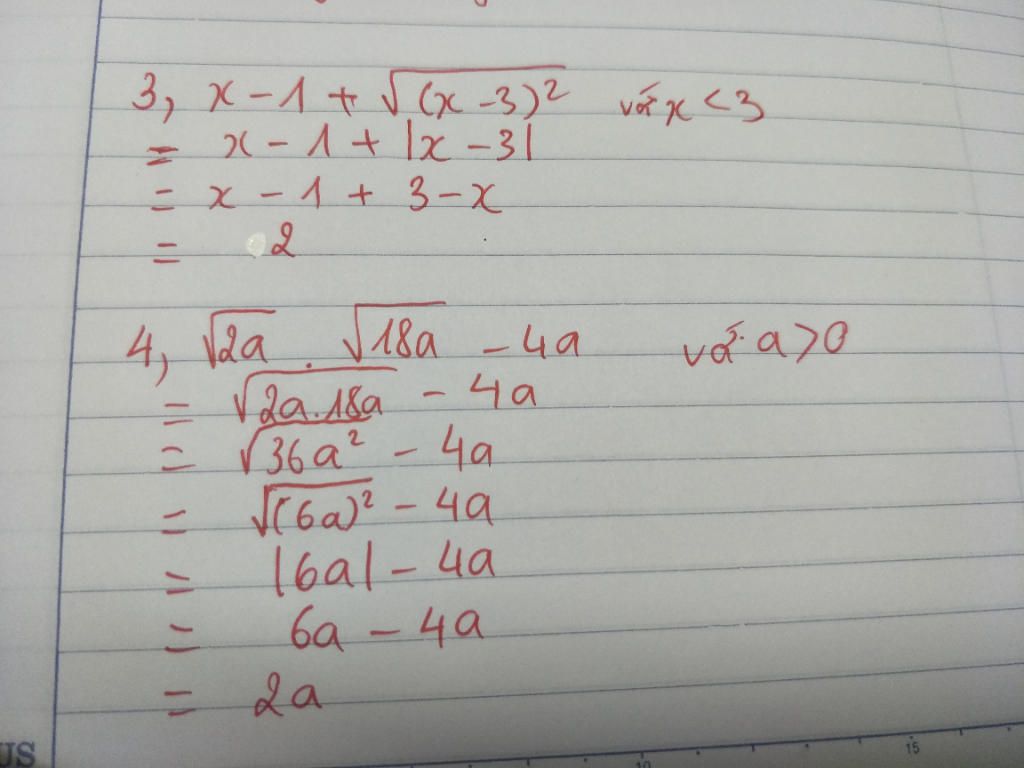 3, x - 1 + √(x - 3)² với x < 3
= x - 1 + |x - 3|
= x - 1 + 3 - x
= 2
4, √2a . √18a - 4a với a > 0
= √2a.18a - 4a
= √36a² - 4a
= √(6a)² - 4a
= |6a| - 4a
= 6a - 4a
= 2a
US
10
15